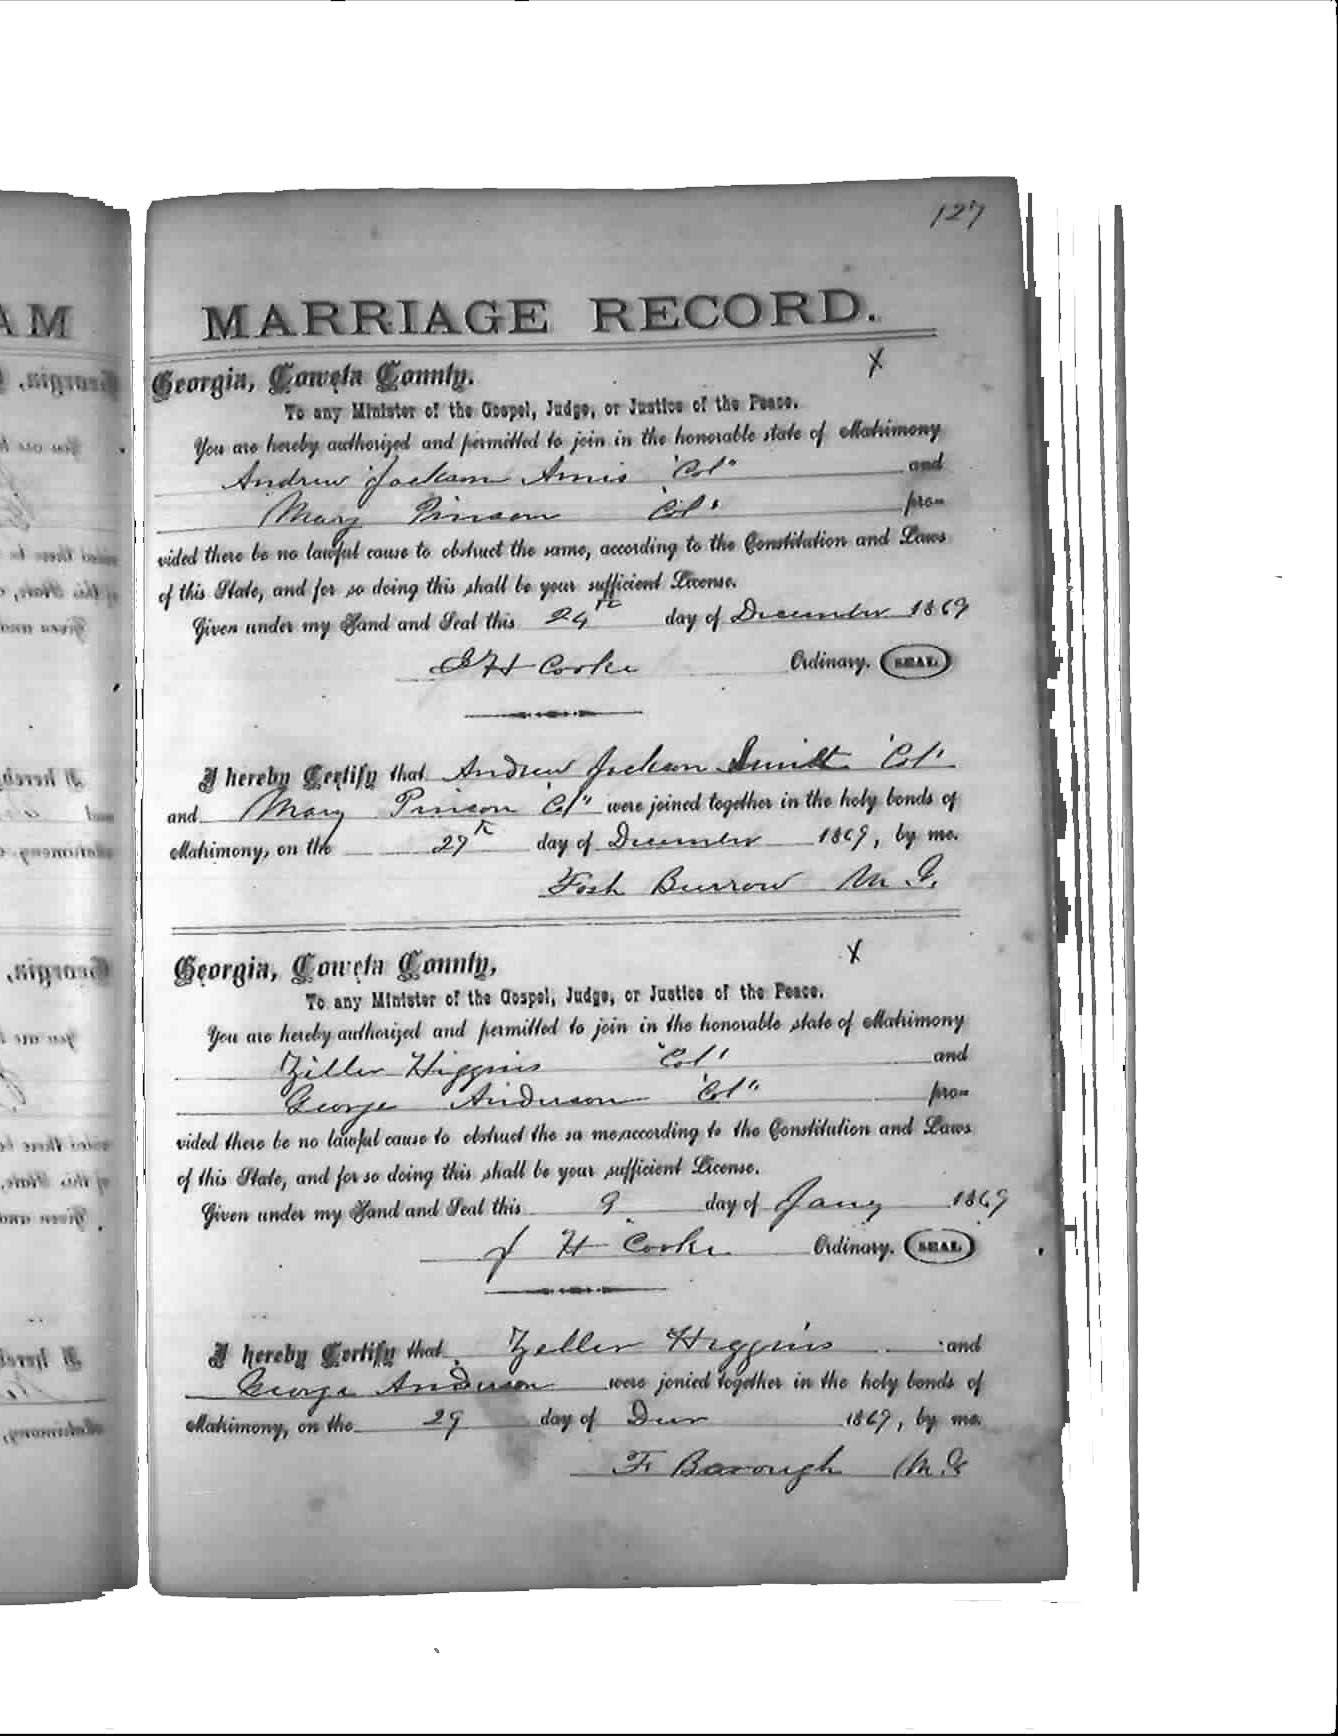 127
AM
MARRIAGE RECORD.
X
Georgia, Coweta County.
To any Minister of the Gospel, Judge, or Justice of the Peace.
You are hereby authorized and permitted to join in the honorable state of Matrimony
Andrew Jackson Amis "Col" and
Mary Pinson "Col" pro-
vided there be no lawful cause to obstruct the same, according to the Constitution and Laws
of this State, and for so doing this shall be your sufficient License.
Given under my Hand and Seal this 24th day of December 1869
J H Cooke Ordinary. SEAL
I hereby Certify that Andrew Jackson Smith "Col"
and Mary Pinson "Col" were joined together in the holy bonds of
Matrimony, on the 27th day of December 1869, by me.
Fosh Burrow M. G.
X
Georgia, Coweta County,
To any Minister of the Gospel, Judge, or Justice of the Peace.
You are hereby authorized and permitted to join in the honorable state of Matrimony
Ziller Higgins "Col" and
George Anderson "Col" pro-
vided there be no lawful cause to obstruct the sa me,according to the Constitution and Laws
of this State, and for so doing this shall be your sufficient License.
Given under my Hand and Seal this 9 day of Jany 1869
J H Cooke Ordinary. SEAL
I hereby Certify that Zeller Higgins and
George Anderson were jonied together in the holy bonds of
Matrimony, on the 29 day of 1869, by me.
F Barough M. G